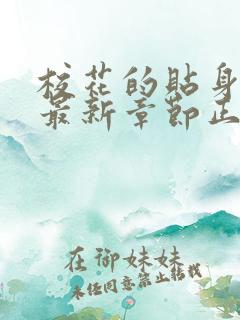 校花的贴身
最新章节正
在御妹妹
未经同意禁止转载